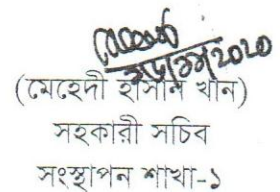 (মেহেদী হাসান খান)
সহকারী সচিব
সংস্থাপন শাখা-১